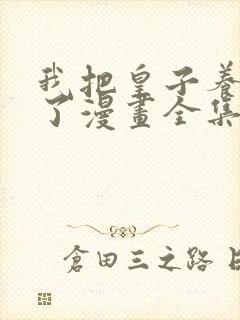 我把皇子養
了漫畫全集
倉田三之路